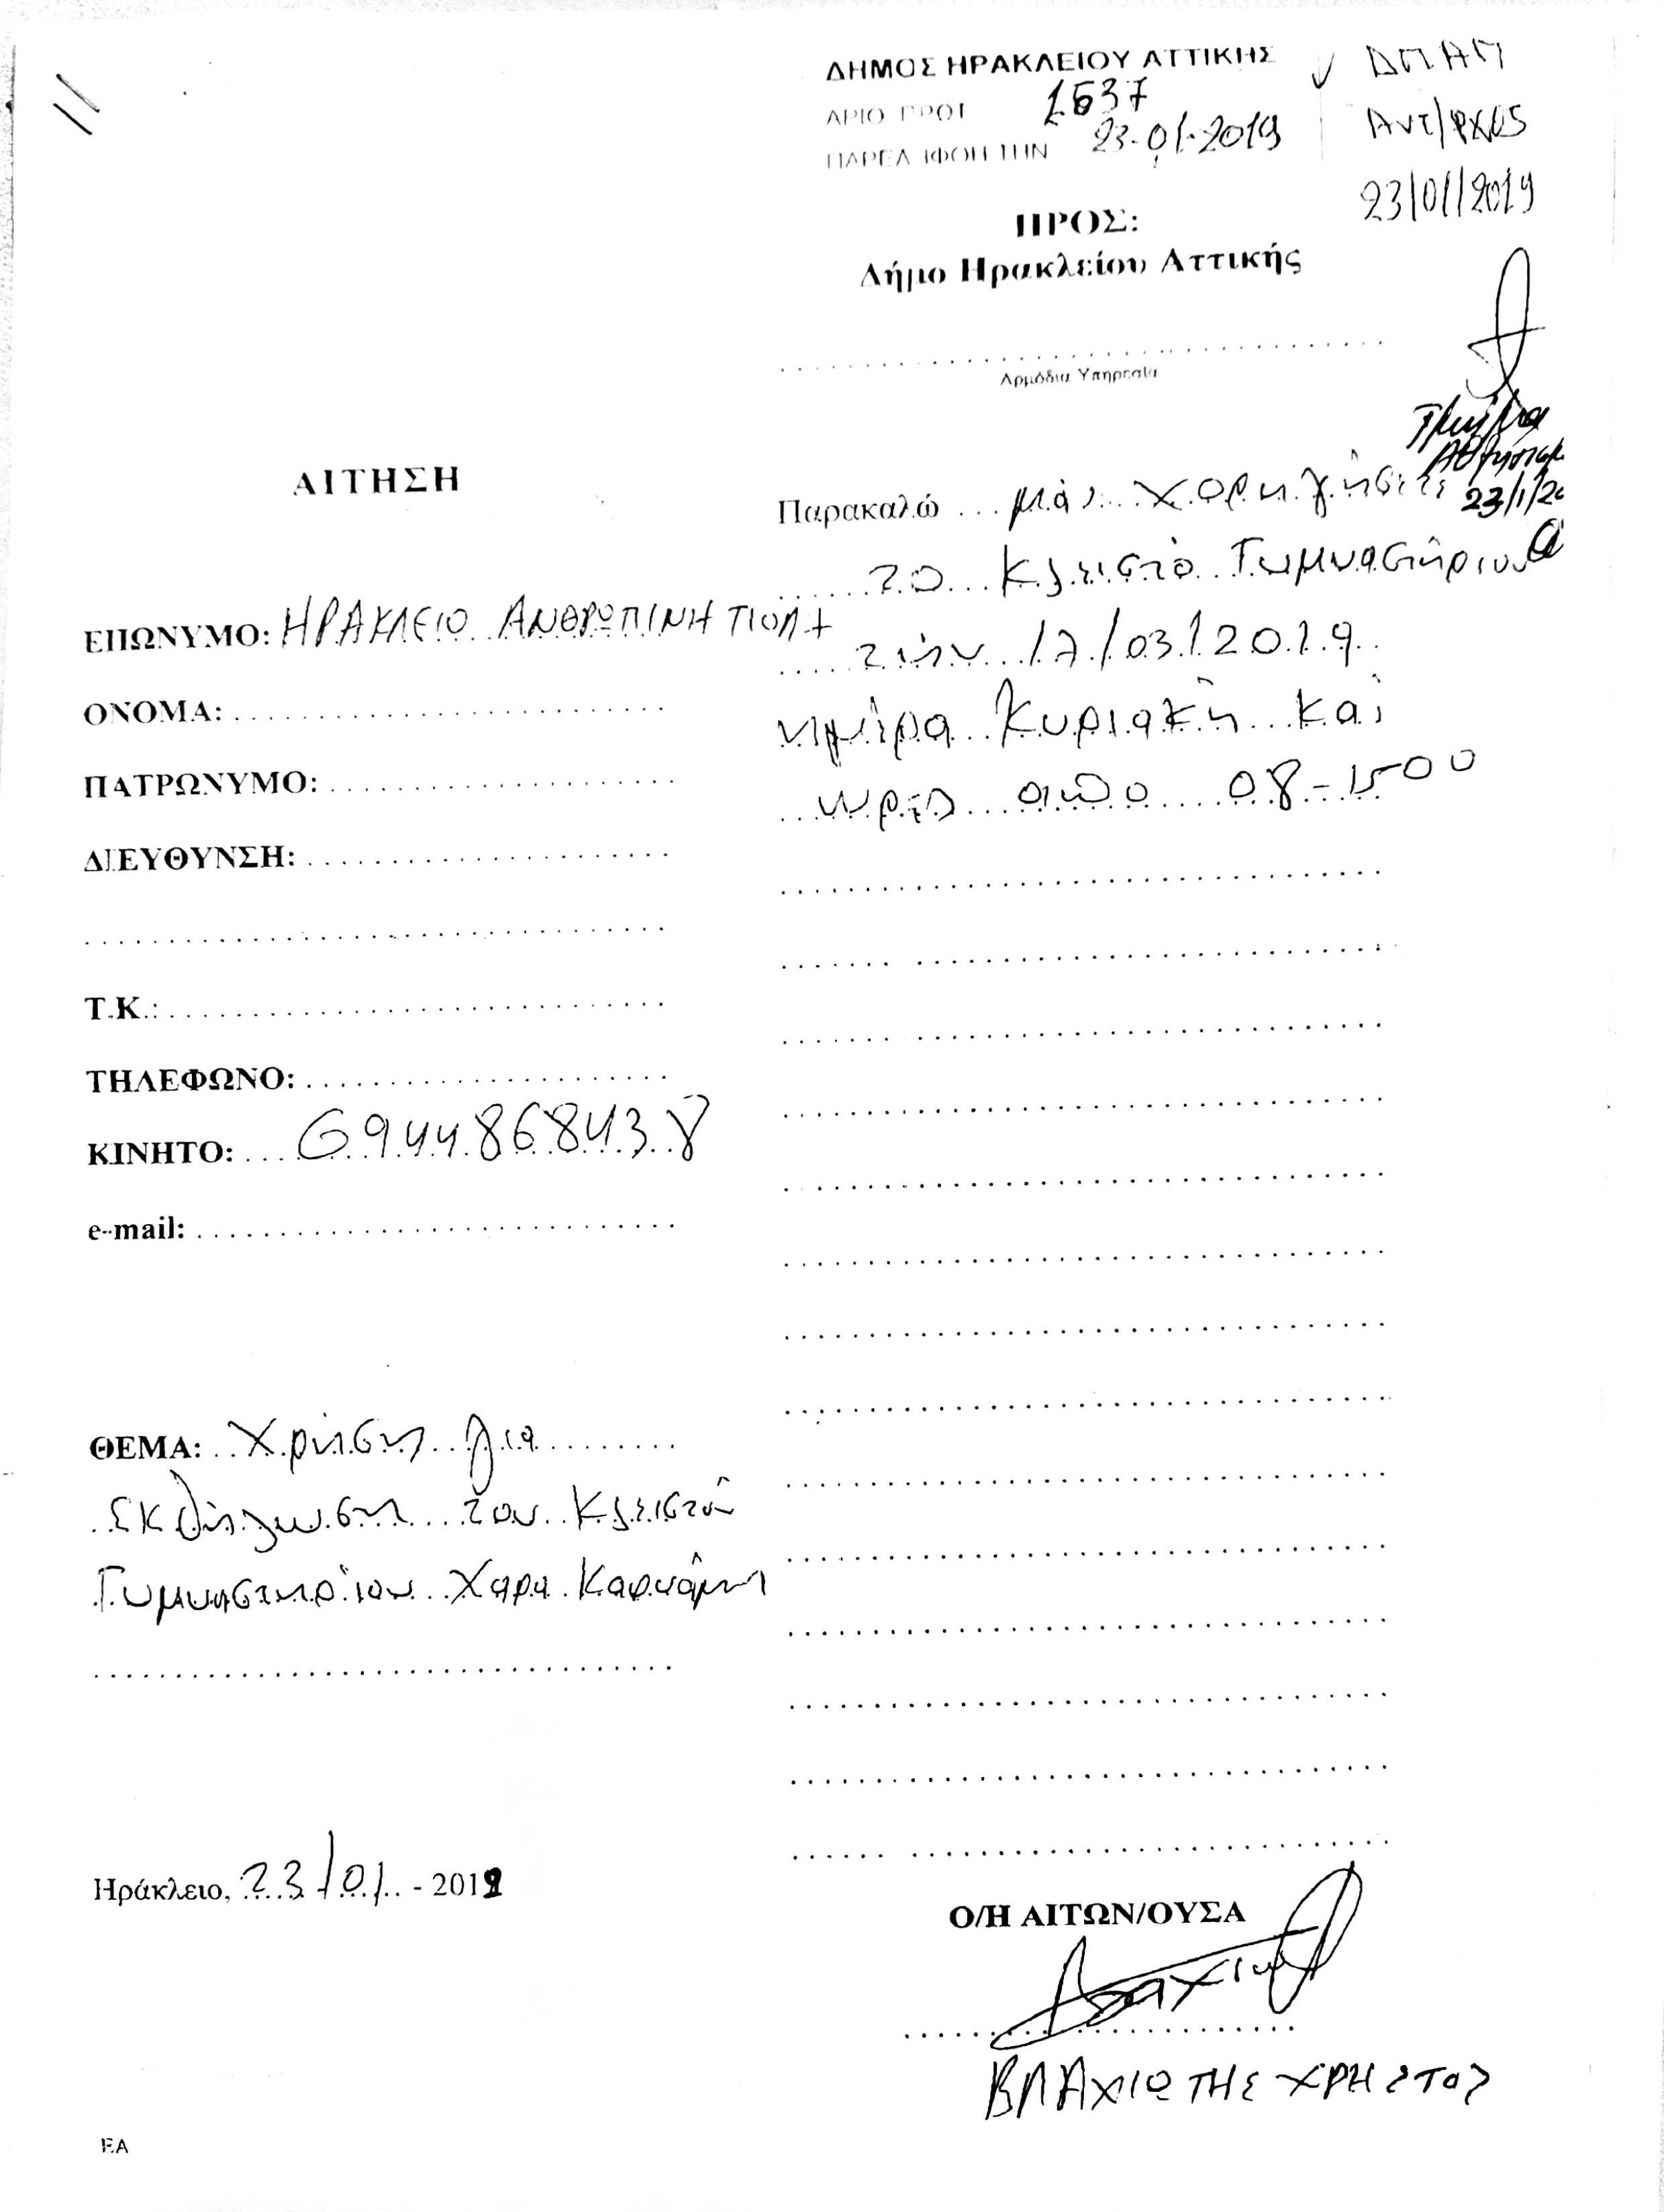 ΔΗΜΟΣ ΗΡΑΚΛΕΙΟΥ ΑΤΤΙΚΗΣ
ΑΡΙΘ ΠΡΩΤ 1637
ΠΑΡΕΛΗΦΘΗ ΤΗΝ 23-01-2019
ΔΠΑΠ
23/01/2019
ΠΡΟΣ:
Δήμο Ηρακλείου Αττικής
Αρμόδια Υπηρεσία
Τμήμα
23/1/20
ΑΙΤΗΣΗ
ΕΠΩΝΥΜΟ: ΗΡΑΚΛΕΙΟ ΑΝΘΡΩΠΙΝΗ ΠΟΛΗ
ΟΝΟΜΑ:
ΠΑΤΡΩΝΥΜΟ:
ΔΙΕΥΘΥΝΣΗ:
Τ.Κ.:
ΤΗΛΕΦΩΝΟ:
ΚΙΝΗΤΟ: 6944868438
e-mail:
ΘΕΜΑ: Χρήση για
εκδήλωση του Κλειστού
Γυμναστηρίου Χαρα Καρυάμη
Ηράκλειο, 23/01 - 2019
Παρακαλώ μας χορηγήσετε
το Κλειστό Γυμναστήριο
την 17/03/2019
ημέρα Κυριακή και
ώρες απο 08-1500
Ο/Η ΑΙΤΩΝ/ΟΥΣΑ
ΒΛΑΧΙΩΤΗΣ ΧΡΗΣΤΟΣ
ΕΑ